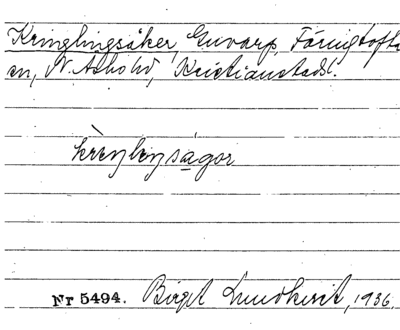 Kringlingsåker, Gunarp, Färingtofta
sn, N. Åsbo hd, Kristianstads l.
krìŋlıŋsågor
Nr 5494. Birgit Lundkvist, 1936.